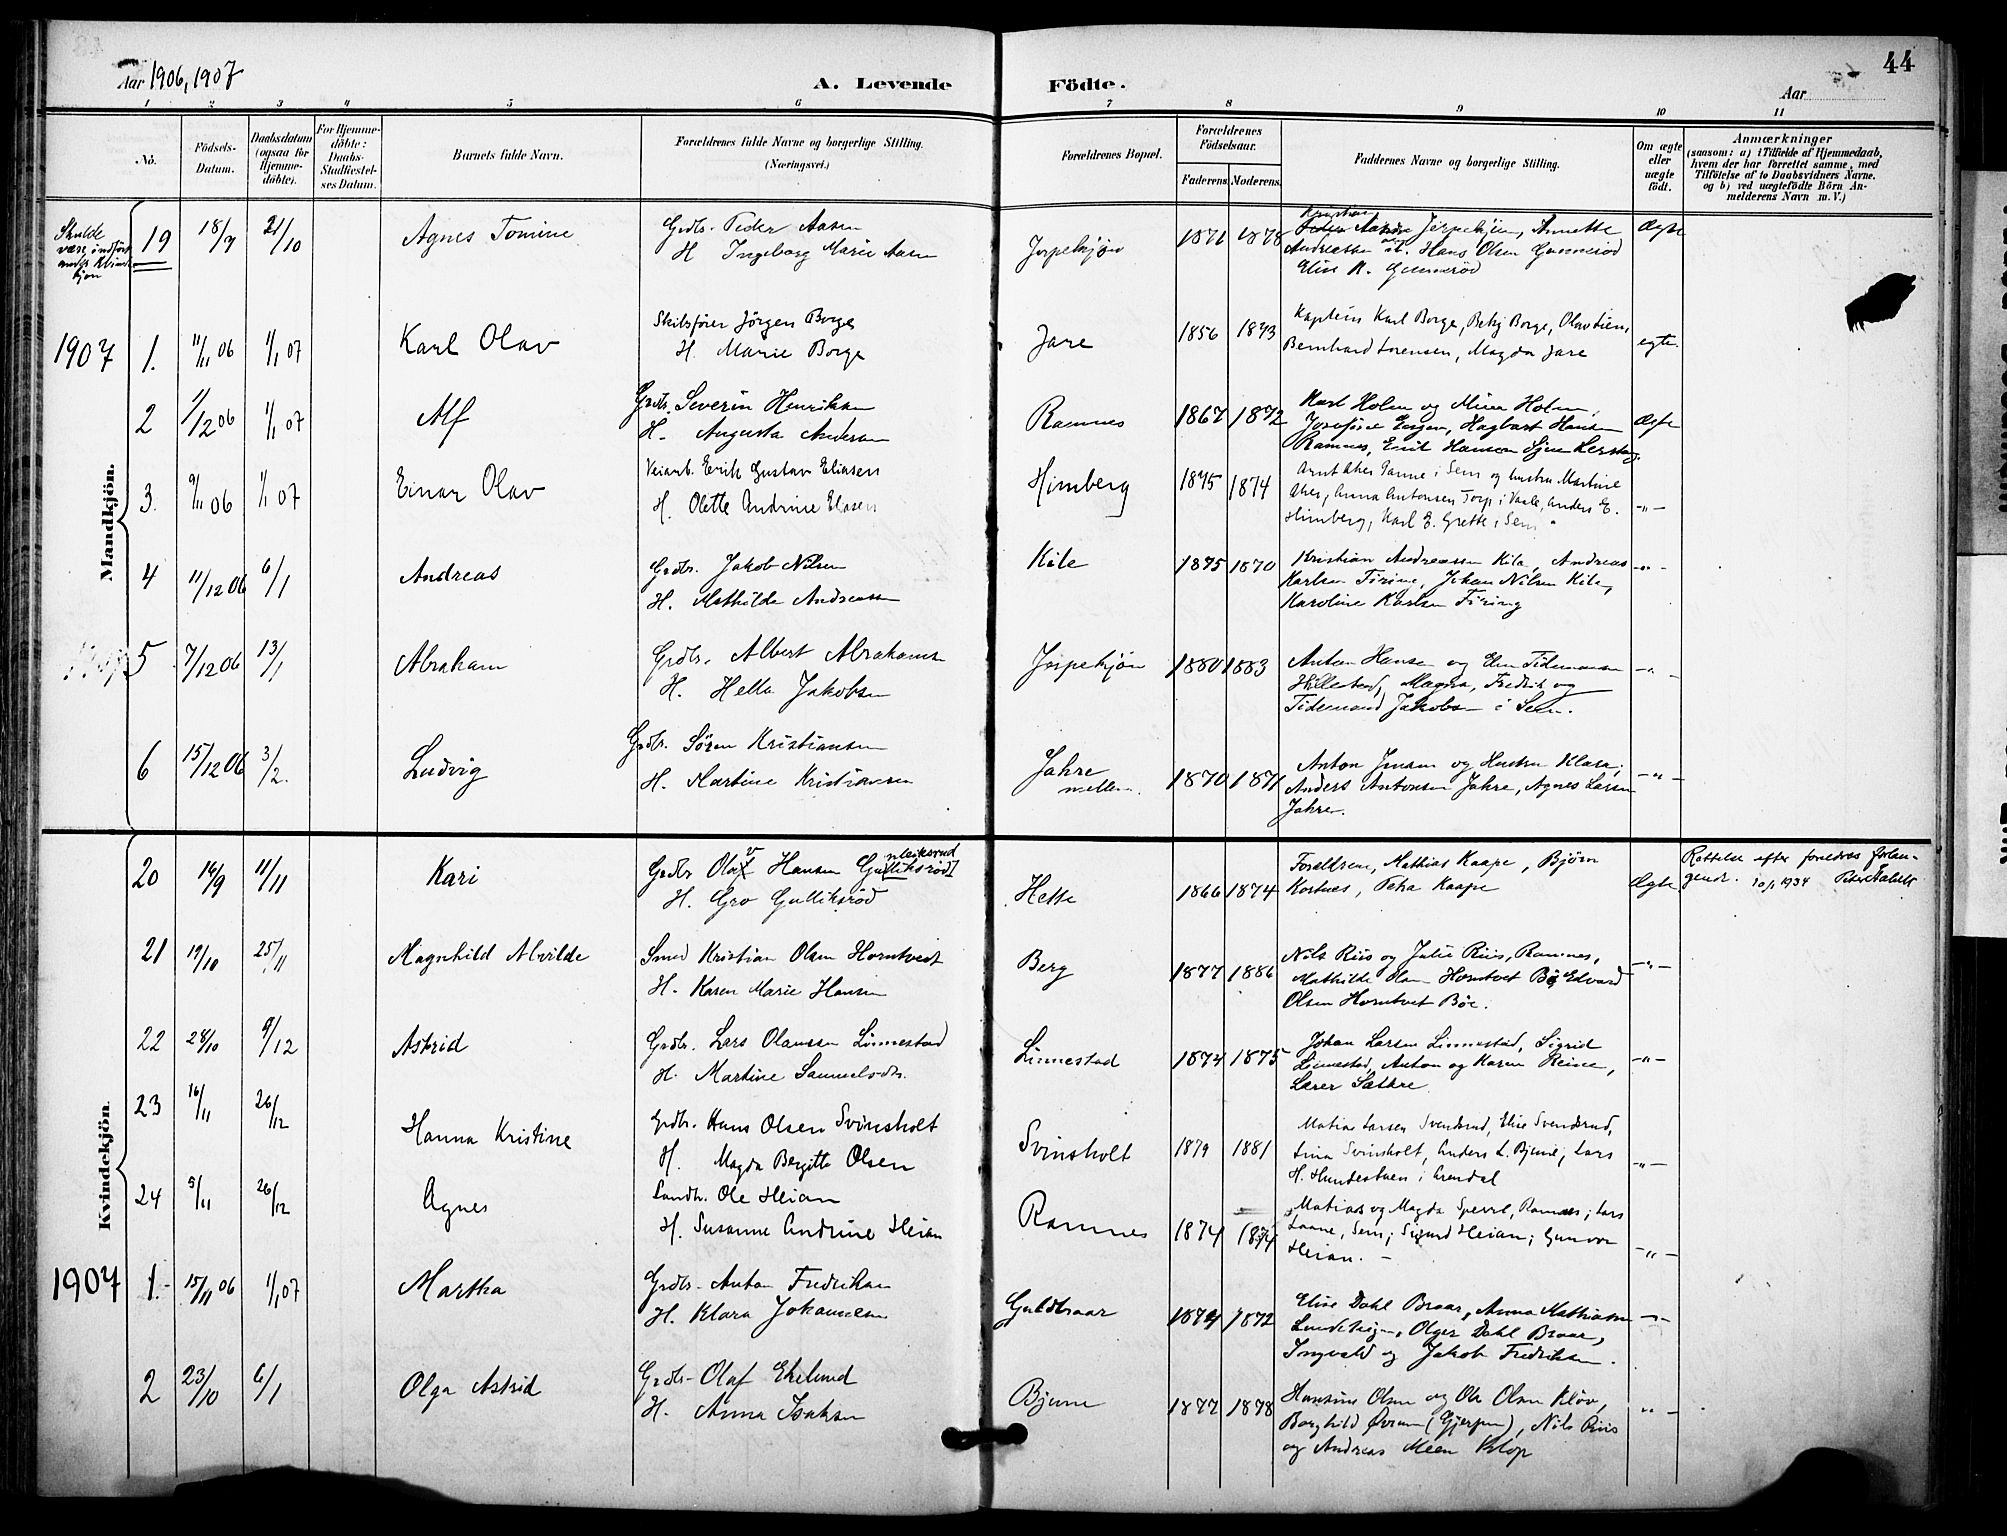 44
Aar 1906, 1907
A. Levende Födte.
Aar
1 2 3 4 5 6 7 8 9 10 11
No.
Födsels-Datum.
Daabsdatum (ogsaa for Hjemme-döbte).
For Hjemme-döbte: Daabs-Stadfæstel-ses Datum.
Barnets fulde Navn.
Forældrenes fulde Navne og borgerlige Stilling. (Næringsvei.)
Forældrenes Bopæl.
Forældrenes Födselsaar.
Faderens. Moderens.
Faddernes Navne og borgerlige Stilling.
Om ægte eller uægte födt.
Anmærkninger
(saasom: a) i Tilfælde af Hjemmedaab, hvem der har forrettet samme, med Tilföielse af to Daabsvidners Navne. og b) ved uægtefödte Börn An-melderens Navn m. V.)
Mandkjön.
Skulde være indfört under Kvindekjön
19 18/7 21/10 Agnes Tomine
Grdbr. Peder Aasen
H. Ingeborg Marie Aasen
Jorpekjøn 1871 1878
Andreassen Hans Olsen Gunnerød
Elise K. Gunnerød
Ægte
1907
1. 11/11 06 1/1 07 Karl Olav
Skibsfører Jörgen Borge
H. Marie Borge
Jare 1856 1873
Kaptein Karl Borge, Betzy Borge,
Bernhard Sorensen, Magda Jare
egte.
2 1/12 06 1/1 07 Alf
Grdbr. Severin Henriksen
H. Augusta Andersen
Ramnes 1867 1872
Karl Holm og Mina Holm,
Josefine Engen, Hagbart Hansen
Ramnes, Emil Hansen
Ægte
3. 9/11 06 1/1 07 Einar Olav
Veiarb. Erik Gustav Eliasen
H. Olette Andrine Eliasen
Himberg 1875 1874
Arnt Aker Tanne i Sem og hustru Martine
Aker, Anna Antonsen Torp i Vaale, Anders E.
Himberg, Karl E. Grette i Sem
-"-
4 11/12 06 6/1 Andreas
Grdbr. Jakob Nilsen
H. Mathilde Andreassen
Kile 1875 1870
Kristian Andreassen Kile, Andreas
Karlsen Firing, Johan Nilsen Kile,
Karoline Karlsen Firing
-"-
5 7/12 06 13/1 Abraham
Grdbr. Albert Abrahamsen
H. Hella Jakobsen
Jorpekjøn 1880 1883
Anton Hansen og Elen Tidemansen
Hillestad, Magna, Fredrik og
Tidemand Jakobsen i Sem.
-"-
6 15/12 06 3/2. Ludvig
Grdbr. Sören Kristiansen
H. Martine Kristiansen
Jahre mellem. 1870 1871
Anton Jensen og Hustru Klara,
Anders Antonsen Jahre, Agnes Larsen
Jahre.
-"-
Kvindekjön.
20 14/9 11/11 Kari
Grdbr Olaf v Hansen Gulliksrød
H. Gro Gulliksrød
Hette 1866 1874
Forældrene, Mathias Kaape, Bjørn
Kostnes, Petra Kaape
Ægte
Rettelse efter foreldres forlangende. 10/1 1934
21 19/10 25/11 Magnhild Alvilde
Smed Kristian Olsen Horntvedt
H. Karen Marie Hansen
Berg 1877 1886
Nils Riis og Julie Riis, Ramnes,
Mathilde Olsen Horntvet Bö, Edvard
Olsen Horntvet Böe.
-"-
22 28/10 9/12 Astrid
Grdbr. Lars Olaussen Linnestad
H. Martine Samuelsdtr.
Linnestad 1874 1875
Johan Larsen Linnestad, Sigrid
Linnestad, Anton og Karen Reine,
Lærer Sætre
-"-
23 16/11 26/12 Hanna Kristine
Grdbr. Hans Olsen Svinsholt
H. Magda Bergitte Olsen
Svinsholt 1879 1881
Matias Larsen Svendsrud, Elise Svendsrud,
Lina Svinsholt, Anders L. Bjune, Lars
H. Hundestuen i Arendal
-"-
24 5/11 26/12 Agnes
Landh. Ole Heian
H. Susanne Andrine Heian
Ramnes 1874 1874
Matias og Magda Sperre, Ramnes; Lars
Laane, Sem; Sigurd Heian; Gunvor
Heian.
-"-
1907
1. 15/11 06 1/1 07 Martha
Grdbr. Anton Fredriksen
H. Klara Johannesen
Guldhaar 1874 1872
Elise Dahl Braar, Anna Mathiasen
Olger Dahl Braar,
Ingvald og Jakob Fredriksen.
-"-
2 23/10 6/1 Olga Astrid
Grdbr. Olaf Ekelund
H. Anna Isaksen
Bjune 1877 1878
Hansine Olsen og Ole Olsen Kløv,
Borghild Øvrum (Gjerpen), Nils Riis
og Andreas Meen Klop
-"-